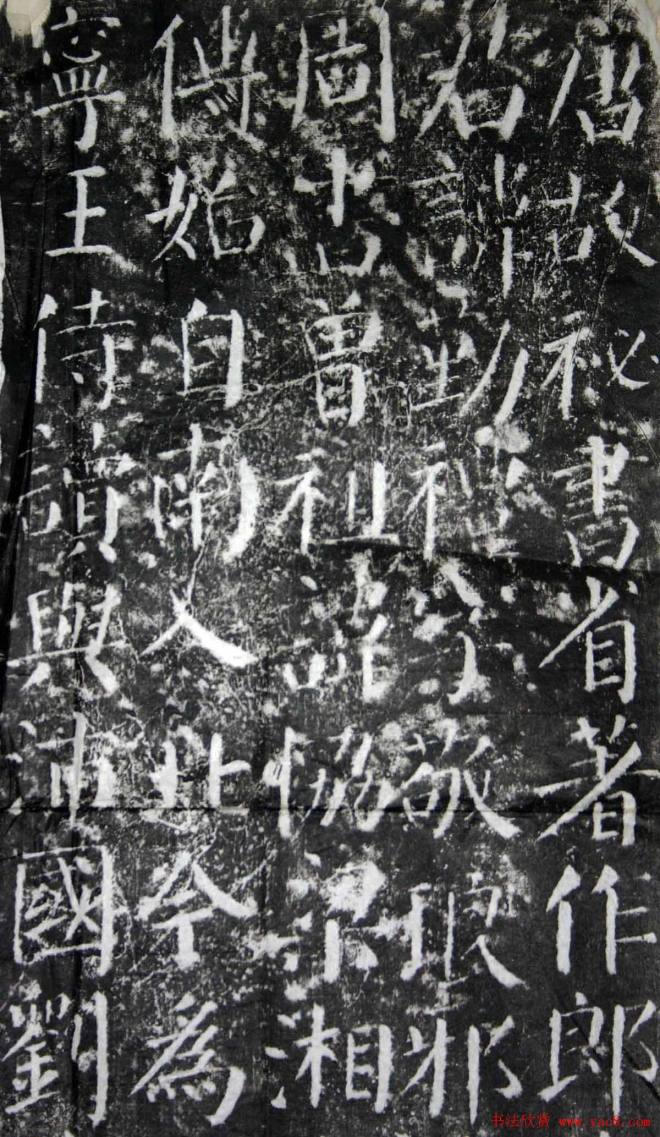 唐故祕書省著作郎
君諱勤禮字敬琅邪
圖書曾祖諱協梁湘
傳始自南入北今為
寧王侍讀與沛國劉
书法欣赏 www.yac8.com